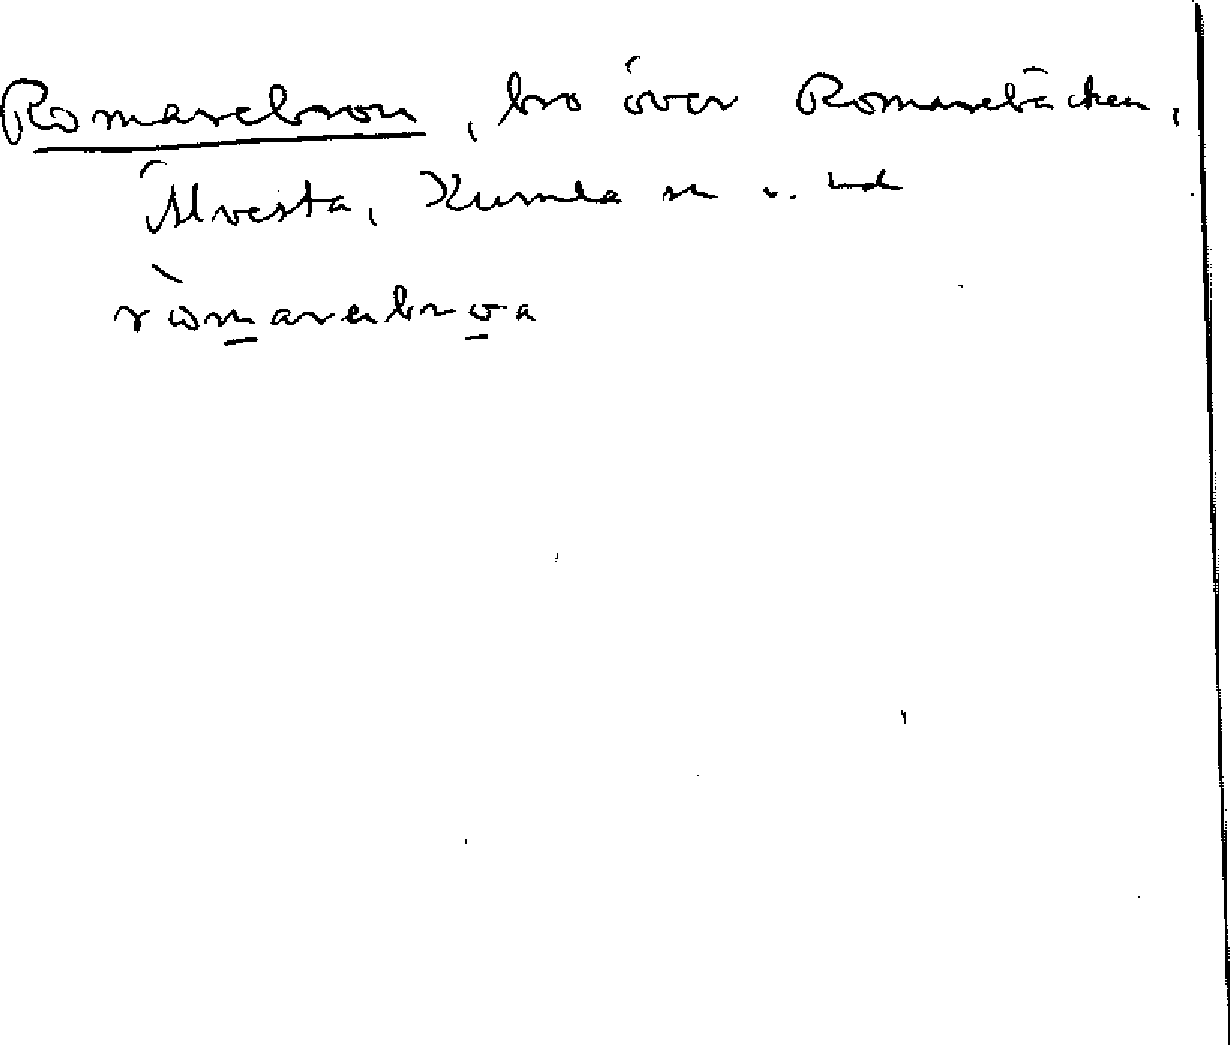 Romarebron, bro över Romarebäcken,
Älvesta, Kumla sn o. hd
ròmarebroa